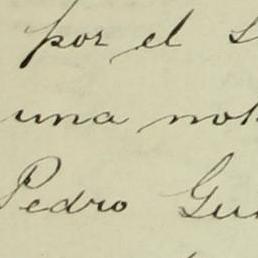 por el S
una not
Pedro Gui